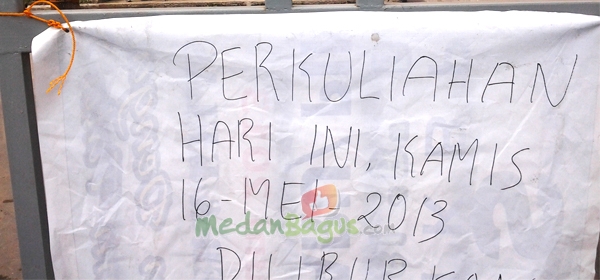 PERKULIAHAN
HARI INI, KAMIS
16-MEI-2013
MedanBagus.com
DILIBURKAN